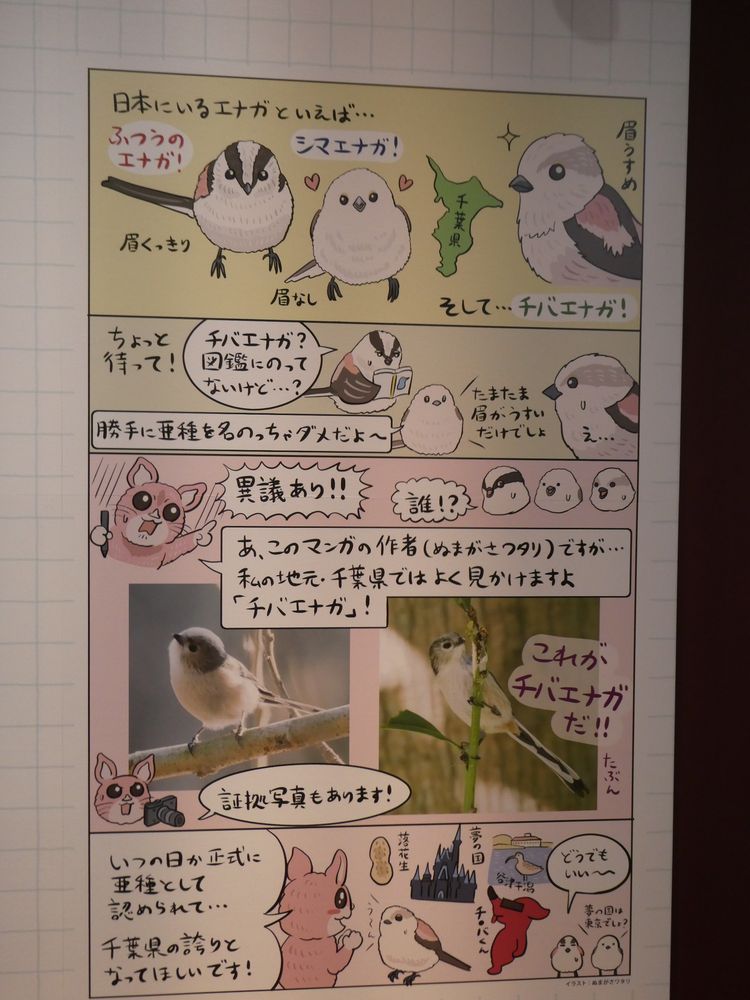 日本にいるエナガといえば…
ふつうの
エナガ!
シマエナガ!
眉うすめ
千葉県
眉くっきり
眉なし
そして…チバエナガ!
ちょっと
待って!
チバエナガ?
図鑑にのって
ないけど…?
たまたま
眉がうすい
だけでしょ
え…
勝手に亜種を名のっちゃダメだよ〜
異議あり!!
誰!?
あ、このマンガの作者(ぬまがさワタリ)ですが…
私の地元・千葉県ではよく見かけますよ
「チバエナガ」!
これが
チバエナガ
だ!!
たぶん
証拠写真もあります!
いつの日か正式に
亜種として
認められて…
千葉県の誇りと
なってほしいです!
落花生
夢の国
谷津干潟
チ・バくん
う〜ん
どうでも
いい〜
夢の国は
東京でしょ?
イラスト:ぬまがさワタリ